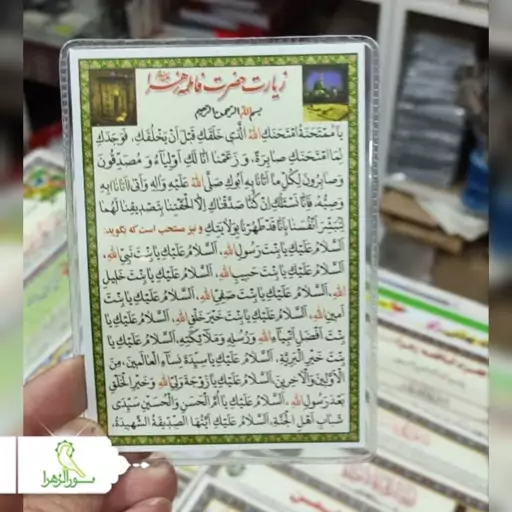 زیارت حضرت فاطمه زهرا
بسم الله الرحمن الرحیم
یا مُمْتَحَنَةُ امْتَحَنَكِ اللهُ الَّذی خَلَقَكِ قَبْلَ اَنْ یَخْلُقَكِ، فَوَجَدَكِ
لِمَا امْتَحَنَكِ صابِرَةً، وَ زَعَمْنا اَنّا لَكِ اَوْلِیآءُ وَ مُصَدِّقُونَ
وَ صابِرُونَ لِكُلِّ ما اَتانا بِهِ اَبُوكِ صَلَّى اللهُ عَلَیْهِ وَ الِهِ وَ اَتى اَتانا بِهِ
وَصِیُّهُ، فَاِنّا نَسْئَلُكِ اِنْ كُنّا صَدَّقْناكِ اِلاّ اَلْحَقْتِنا بِتَصْدیقِنا لَهُما
لِنُبَشِّرَ اَنْفُسَنا بِاَنّا قَدْ طَهُرْنا بِوِلایَتِكِ و نیز مستحب است که بگوید:
اَلسَّلامُ عَلَیْكِ یا بِنْتَ رَسُولِ اللهِ، اَلسَّلامُ عَلَیْكِ یا بِنْتَ نَبِیِّ اللهِ،
اَلسَّلامُ عَلَیْكِ یا بِنْتَ حَبیبِ اللهِ، اَلسَّلامُ عَلَیْكِ یا بِنْتَ خَلیلِ
اللهِ، اَلسَّلامُ عَلَیْكِ یا بِنْتَ صَفِیِّ اللهِ، اَلسَّلامُ عَلَیْكِ یا بِنْتَ
اَمینِ اللهِ، اَلسَّلامُ عَلَیْكِ یا بِنْتَ خَیْرِ خَلْقِ اللهِ، اَلسَّلامُ عَلَیْكِ یا
بِنْتَ اَفْضَلِ اَنْبِیآءِ اللهِ وَ رُسُلِهِ وَ مَلائِكَتِهِ، اَلسَّلامُ عَلَیْكِ یا
بِنْتَ خَیْرِ الْبَرِیَّةِ، اَلسَّلامُ عَلَیْكِ یا سَیِّدَةَ نِسآءِ الْعالَمینَ، مِنَ
الْاَوَّلینَ وَ الْاخِرینَ، اَلسَّلامُ عَلَیْكِ یا زَوْجَةَ وَلِیِّ اللهِ وَ خَیْرِ الْخَلْقِ
بَعْدَ رَسُولِ اللهِ، اَلسَّلامُ عَلَیْكِ یا اُمَّ الْحَسَنِ وَ الْحُسَیْنِ سَیِّدَىْ
شَبابِ اَهْلِ الْجَنَّةِ، اَلسَّلامُ عَلَیْكِ اَیَّتُهَا الصِّدّیقَةُ الشَّهیدَةُ،
نورالزهرا